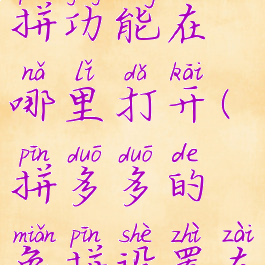 拼功能在
nǎ lǐ dǎ kāi
哪里打开(
pīn duō duō de
拼多多的
miǎn pīn shè zhì zài
免拼设置在